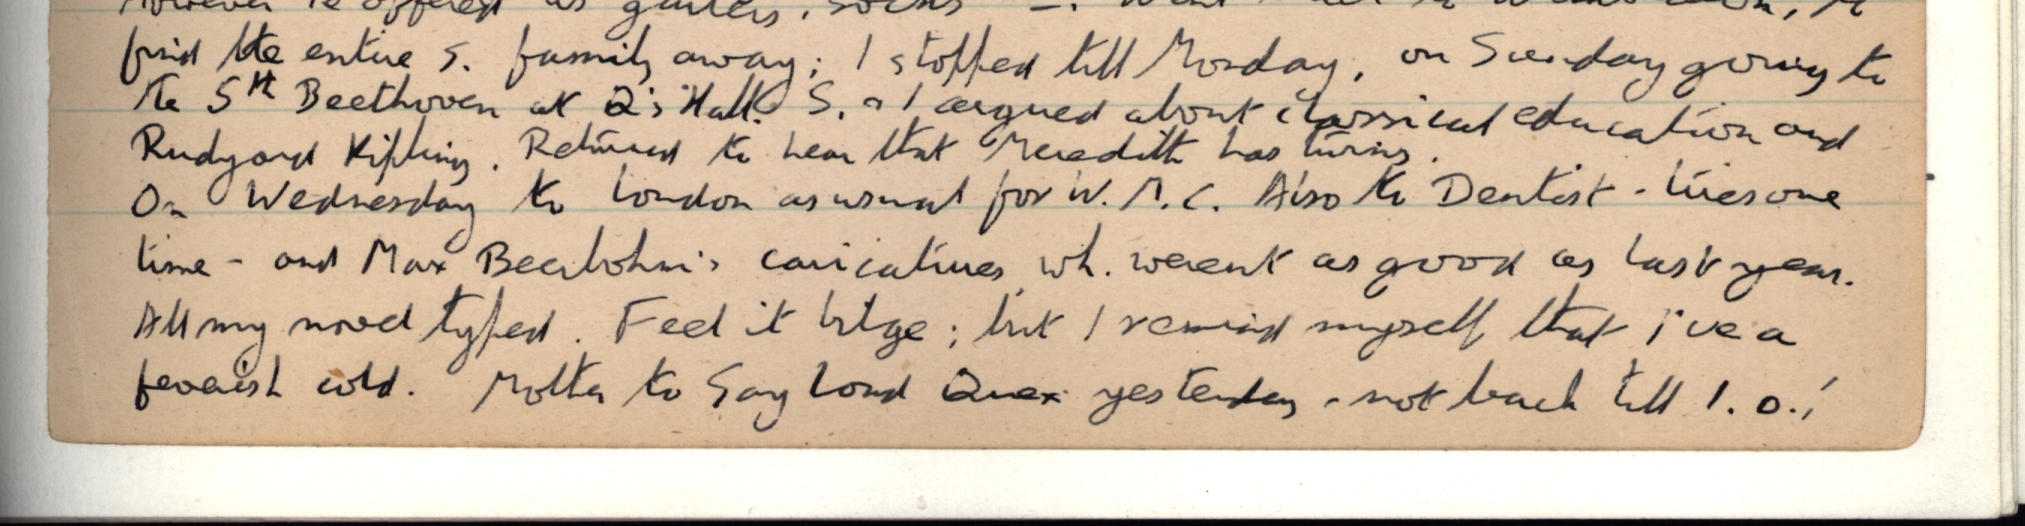 However he offered us garters, socks
find the entire S. family away; I stopped till Monday, on Sunday going to
the 5th Beethoven at Q's Hall. S. & I argued about classical education and
Rudyard Kipling. Returned to hear that Meredith has
On Wednesday to London as usual for W.M.C. Also to Dentist - tiresome
time - and Max Beerbohm's caricatures, wh. werent as good as last year.
All my novel typed. Feel it bilge; but I remind myself that I've a
feverish cold. Mother to Gay Lord Quex yesterday - not back till 1.0.!